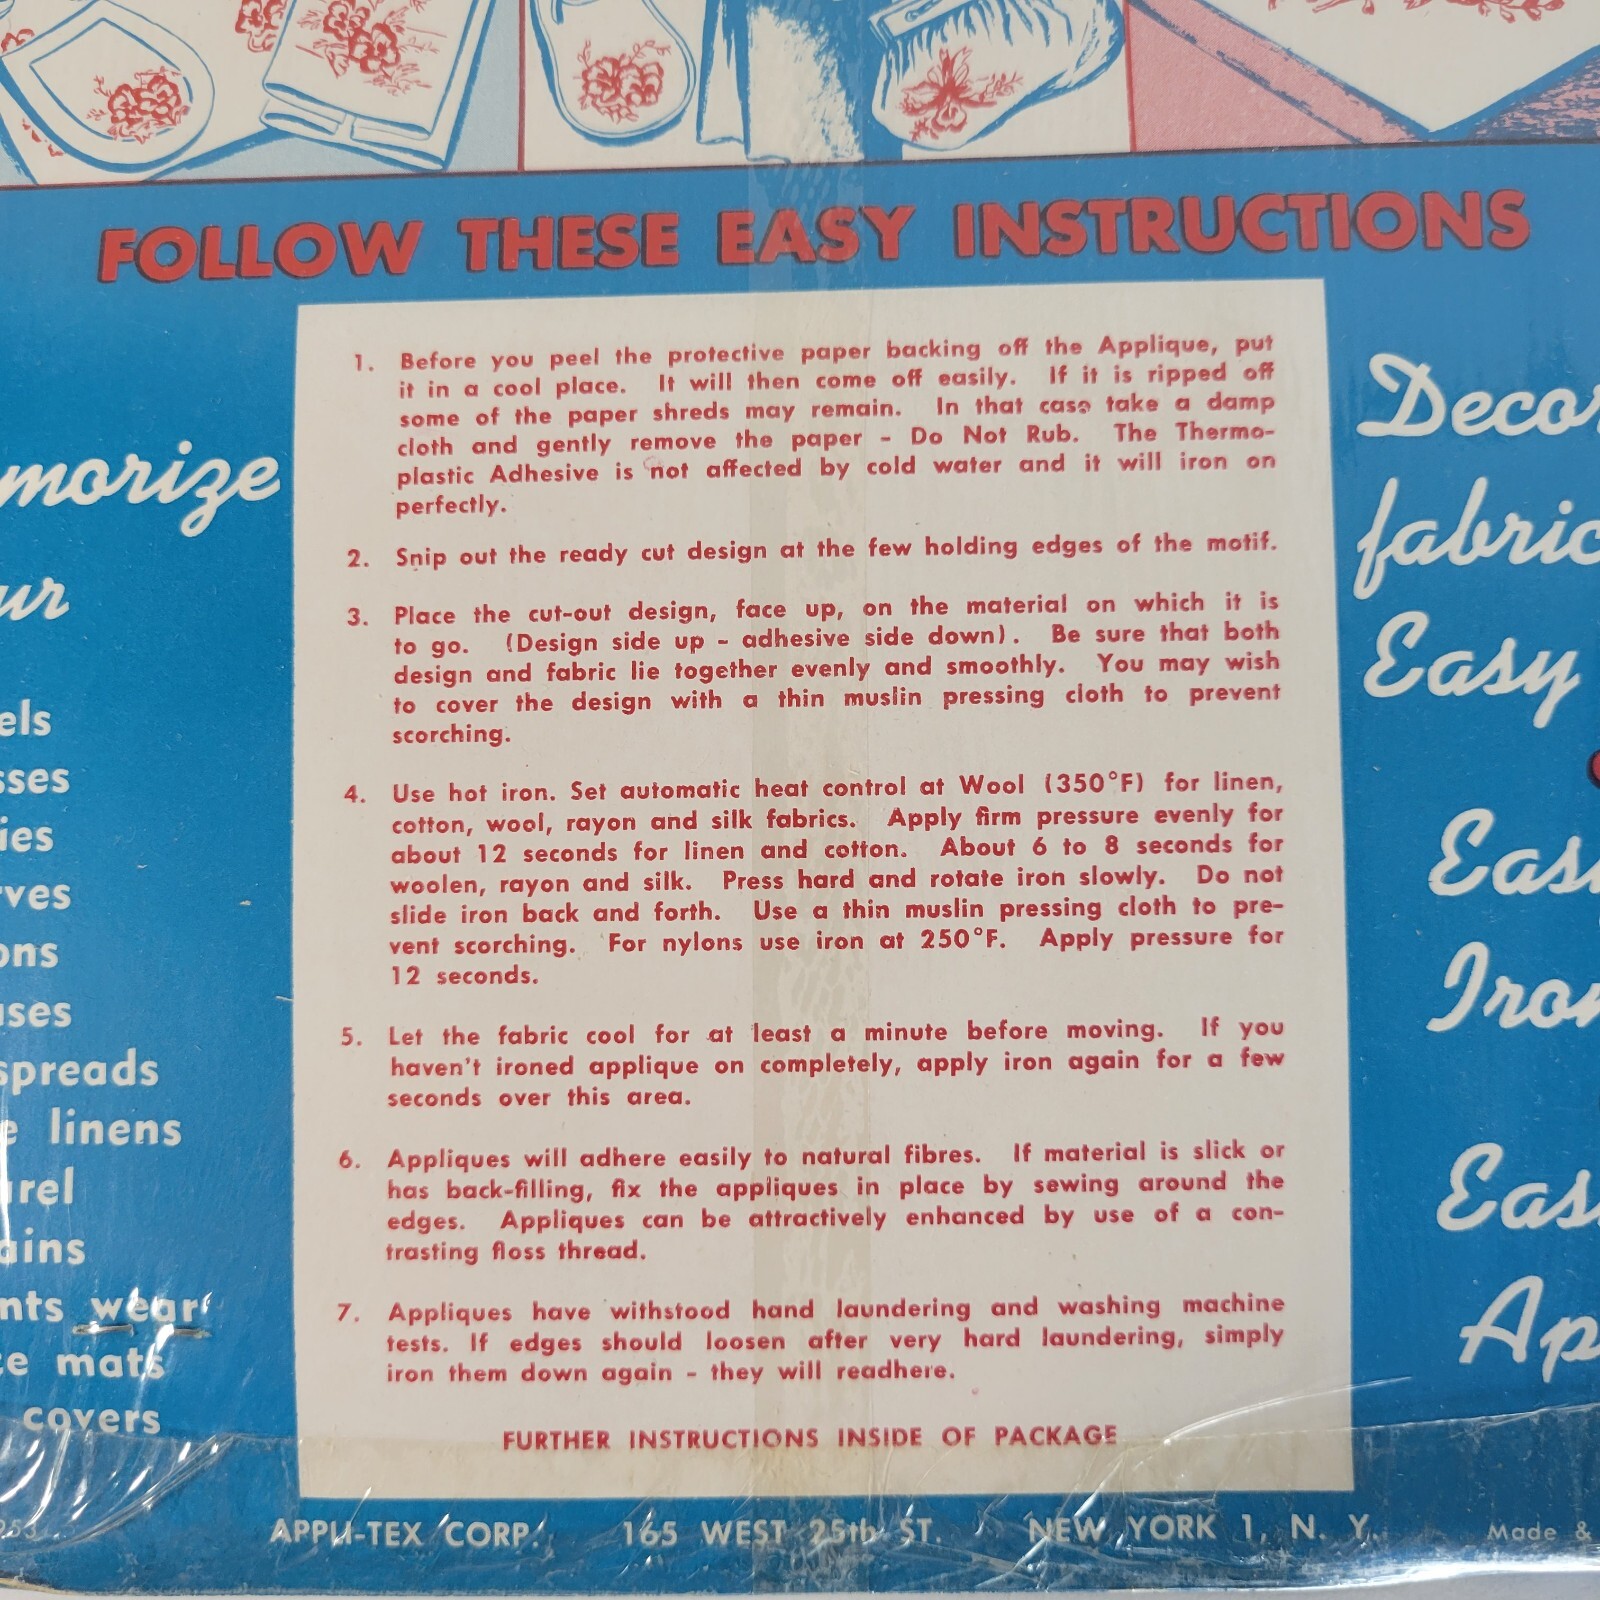 FOLLOW THESE EASY INSTRUCTIONS
1. Before you peel the protective paper backing off the Applique, put
it in a cool place. It will then come off easily. If it is ripped off
some of the paper shreds may remain. In that case take a damp
cloth and gently remove the paper - Do Not Rub. The Thermo-
plastic Adhesive is not affected by cold water and it will iron on
perfectly.
2. Snip out the ready cut design at the few holding edges of the motif.
3. Place the cut-out design, face up, on the material on which it is
to go. (Design side up - adhesive side down). Be sure that both
design and fabric lie together evenly and smoothly. You may wish
to cover the design with a thin muslin pressing cloth to prevent
scorching.
4. Use hot iron. Set automatic heat control at Wool (350°F) for linen,
cotton, wool, rayon and silk fabrics. Apply firm pressure evenly for
about 12 seconds for linen and cotton. About 6 to 8 seconds for
woolen, rayon and silk. Press hard and rotate iron slowly. Do not
slide iron back and forth. Use a thin muslin pressing cloth to pre-
vent scorching. For nylons use iron at 250°F. Apply pressure for
12 seconds.
5. Let the fabric cool for at least a minute before moving. If you
haven't ironed applique on completely, apply iron again for a few
seconds over this area.
6. Appliques will adhere easily to natural fibres. If material is slick or
has back-filling, fix the appliques in place by sewing around the
edges. Appliques can be attractively enhanced by use of a con-
trasting floss thread.
7. Appliques have withstood hand laundering and washing machine
tests. If edges should loosen after very hard laundering, simply
iron them down again - they will readhere.
FURTHER INSTRUCTIONS INSIDE OF PACKAGE
morize
ur
els
sses
ies
rves
ons
uses
spreads
e linens
rel
ains
nts wear
ce mats
covers
Decor
fabric
Easy
Eas
Iron
Eas
Ap
953 APPLI-TEX CORP. 165 WEST 25th ST. NEW YORK 1, N. Y. Made &